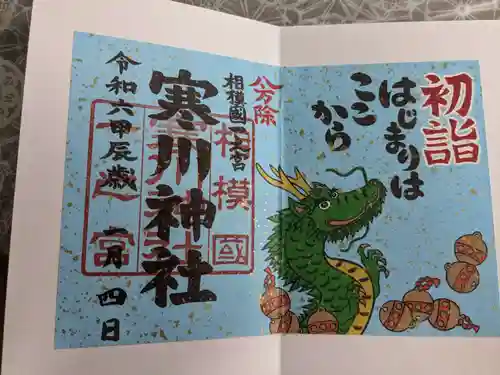 初詣
はじまりは
ここ
から
八方除
相模國一之宮
寒川神社
相模國
一之宮
令和六甲辰歳
一月四日